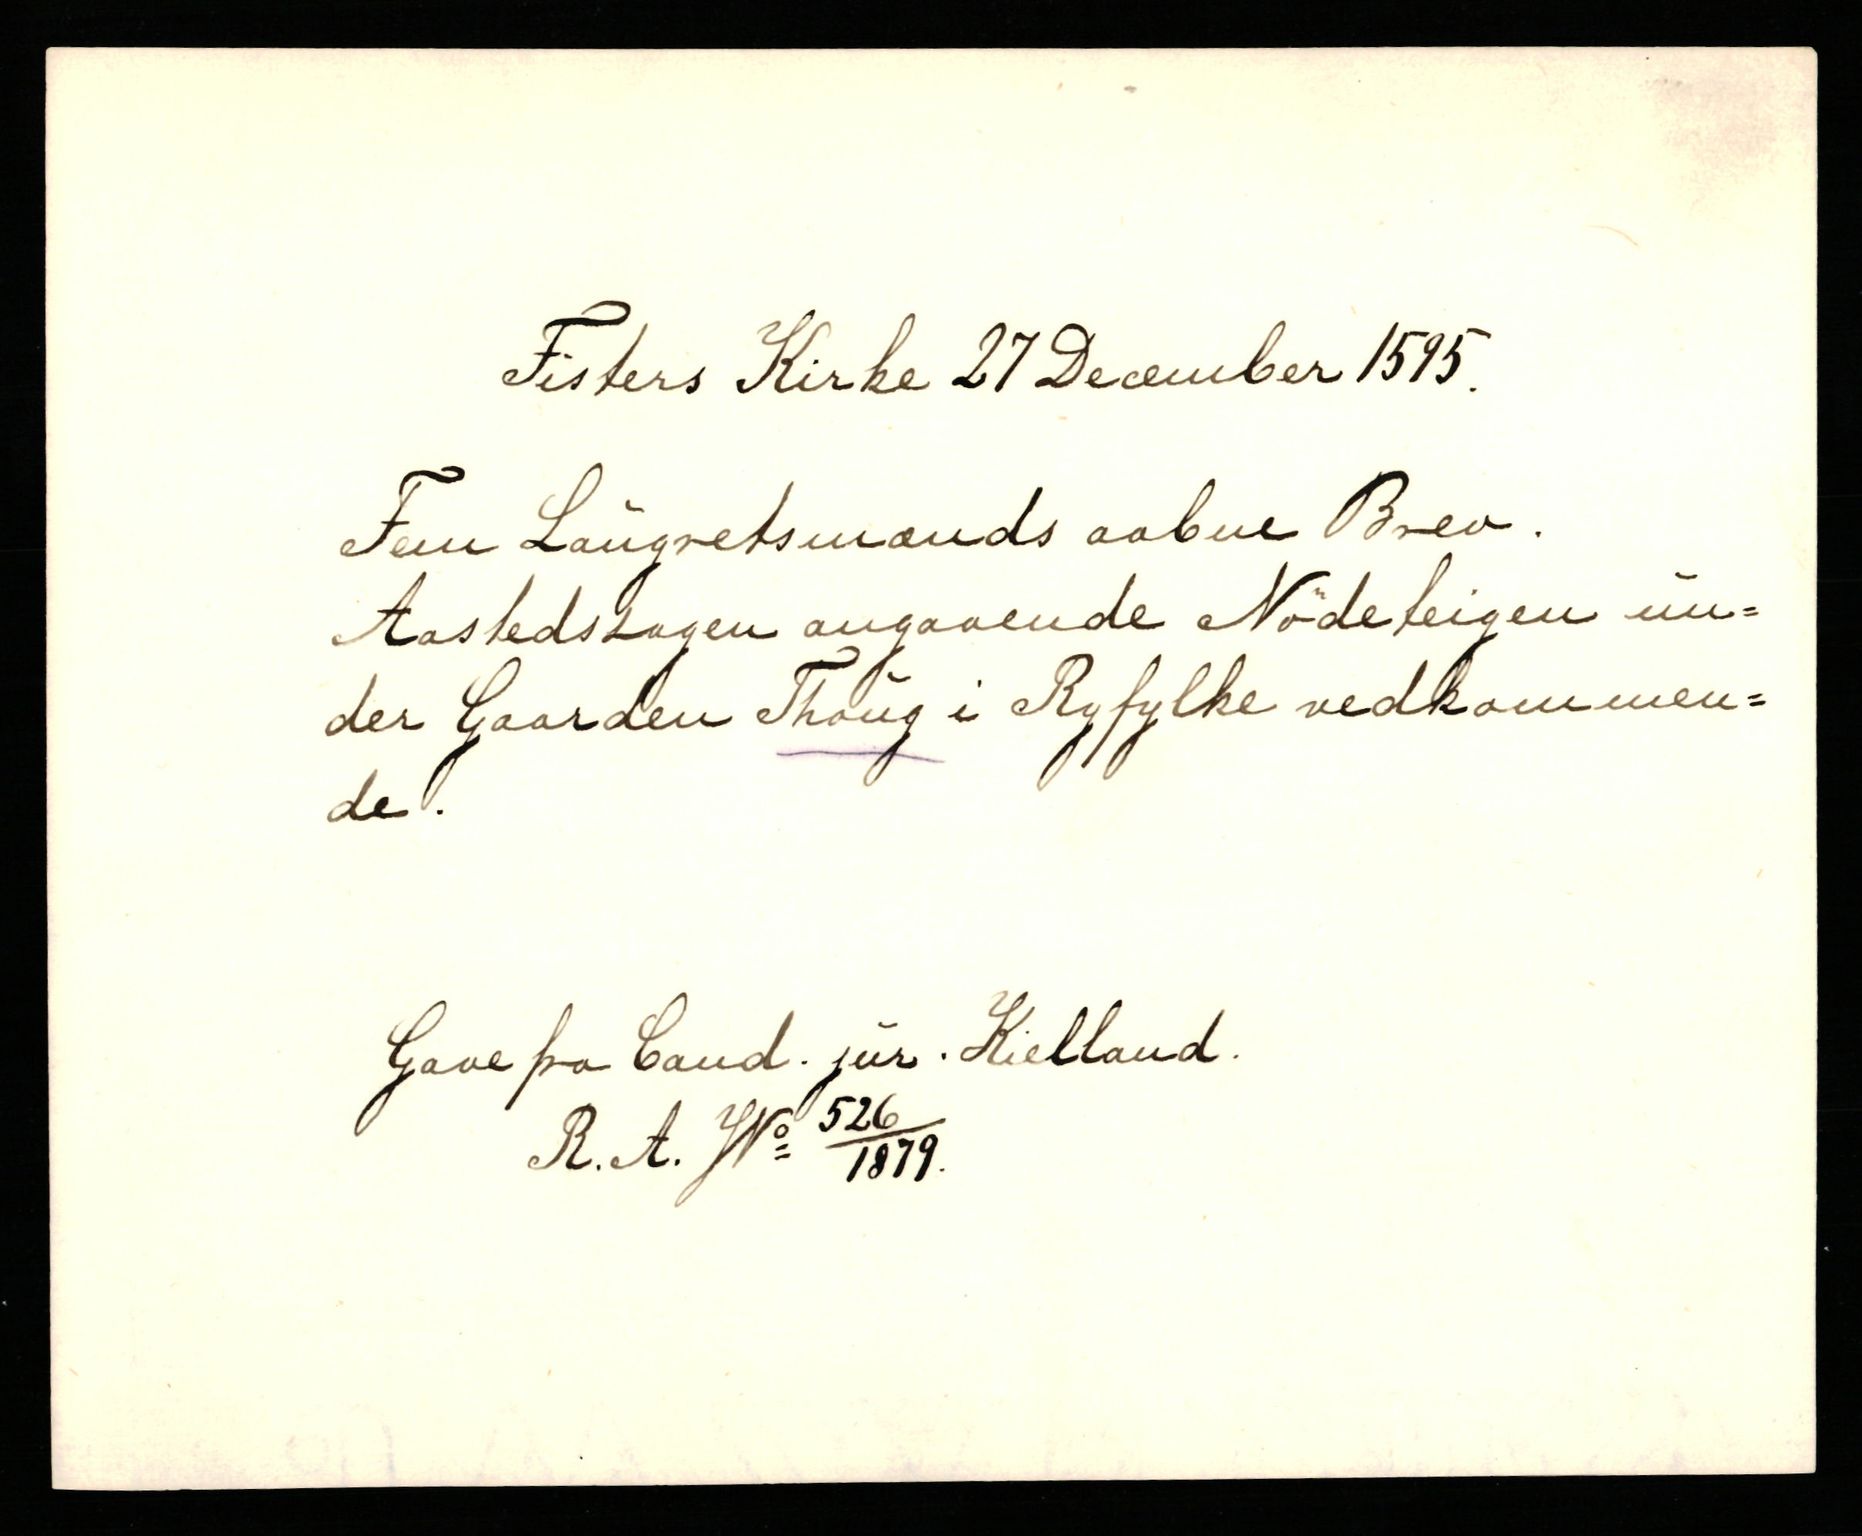 Fisters Kirke 27 December 1595.
Fem Laugretsmænds aabne Brev.
Aastedssagen angaaende Nödeteigen un=
der Gaarden Thaug i Ryfylke vedkommen=
de.
Gave fra Cand. jur. Kielland.
R. A. J No 526/1879.